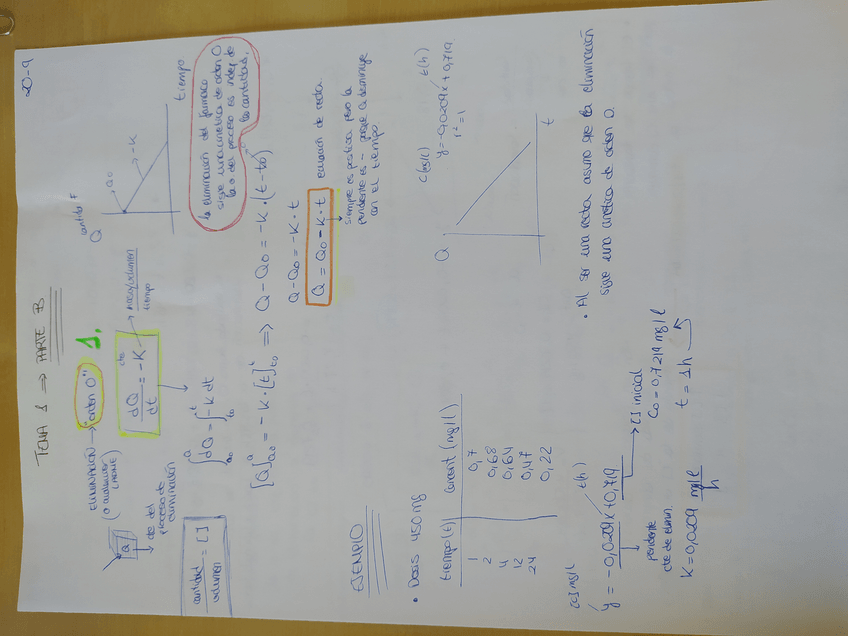 20-9
TEMA 1 ⇒ PARTE B
ELIMINACIÓN → "orden 0" 1.
(o cualquier
LADME)
Q
cte del
proceso de
eliminación
dQ/dt = -K
cte
masa/volumen
tiempo
cantidad F
Q
Q0
-K
tiempo
la eliminación del fármaco
sigue una cinética de orden 0
la v del proceso es indep de
las cantidades.
cantidad/volumen = [ ]
∫ dQ = ∫ -K dt
Q0 Q t0 t
[Q]Q0 Q = -K · [t]t0 t ⇒ Q - Q0 = -K · (t - t0)
Q - Q0 = -K · t
Q = Q0 - K · t ecuación de recta
siempre es positiva pero la
pendiente es - porque Q disminuye
con el tiempo.
EJEMPLO
• Dosis 450 mg
tiempo (t) concent (mg/l)
1 0,7
2 0,68
4 0,64
12 0,47
24 0,22
Q
t
t(h)
y = -0,0209x + 0,719
r² = 1
[ ] mg/l
y = -0,0209x + 0,719
t(h)
pendiente
cte de elimin.
K = 0,0209 mg/l/h
[ ] inicial
C0 = 0,7219 mg/l
t = 1h
• Al ser una recta asumo que la eliminación
sigue una cinética de orden 0.